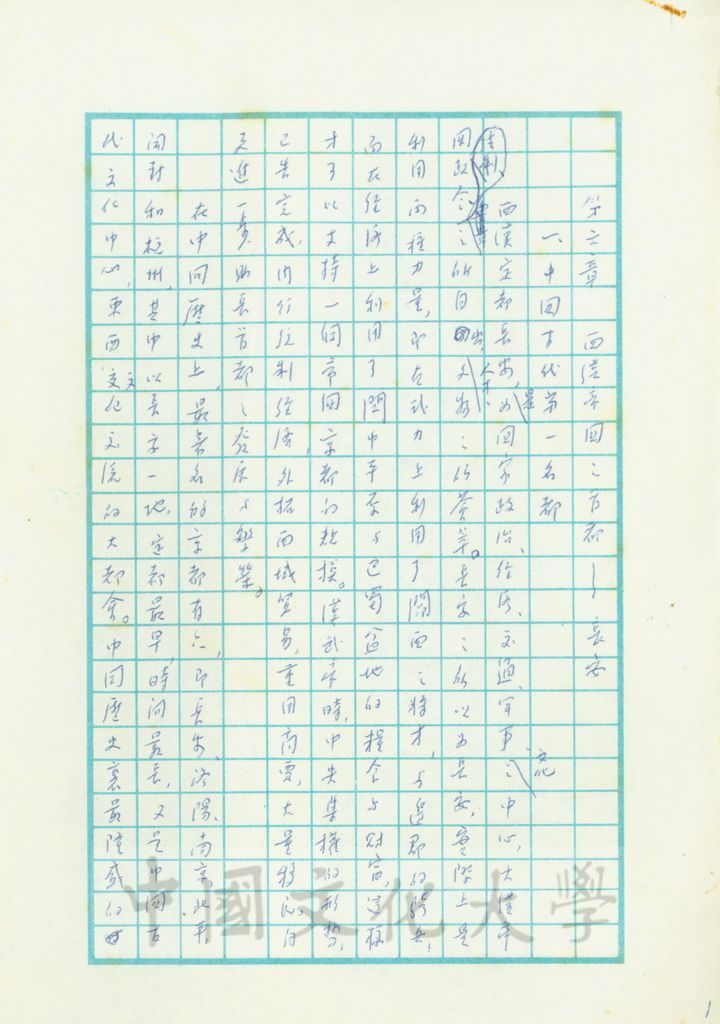 第六章 西漢帝國之首都——長安
一、中國古代第一名都
西漢定都長安,為國家政治、經濟、交通、軍事、文化之中心,大漢帝
國政令之所自出,人才、文物之所薈萃。長安之所以為長安,實際上是
利用兩種力量,即在武力上利用了關西之將才,与邊郡的
而在經濟上利用了關中平原与巴蜀盆地的糧食与財富,這樣
才可以支持一個帝國京都的規模。漢武帝時,中央集權的形勢,
已告完成,內行統制經濟,外拓西域貿易,重用商賈,大量移民,自
更進一步助長首都之發展与繁榮。
在中國歷史上,最著名的京都有六,即長安、洛陽、南京、北平、
開封和杭州,其中以長安一地,定都最早,時間最長,又是中國古
代文化中心,東西文化交流的大都會。中國歷史裏最隆盛的
中國文化大學
1